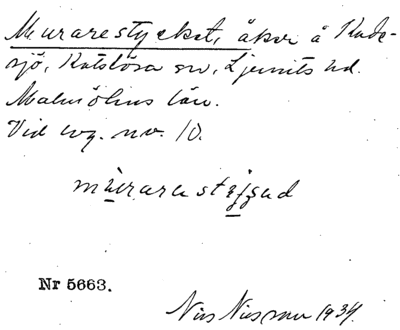 Murarestycket, åker å Kade-
sjö, Katslösa sn, Ljunits hd.
Malmöhus län.
Vid wg. nr. 10.
murarastyjɡad
Nr 5663.
Nils Nilsson 1934.